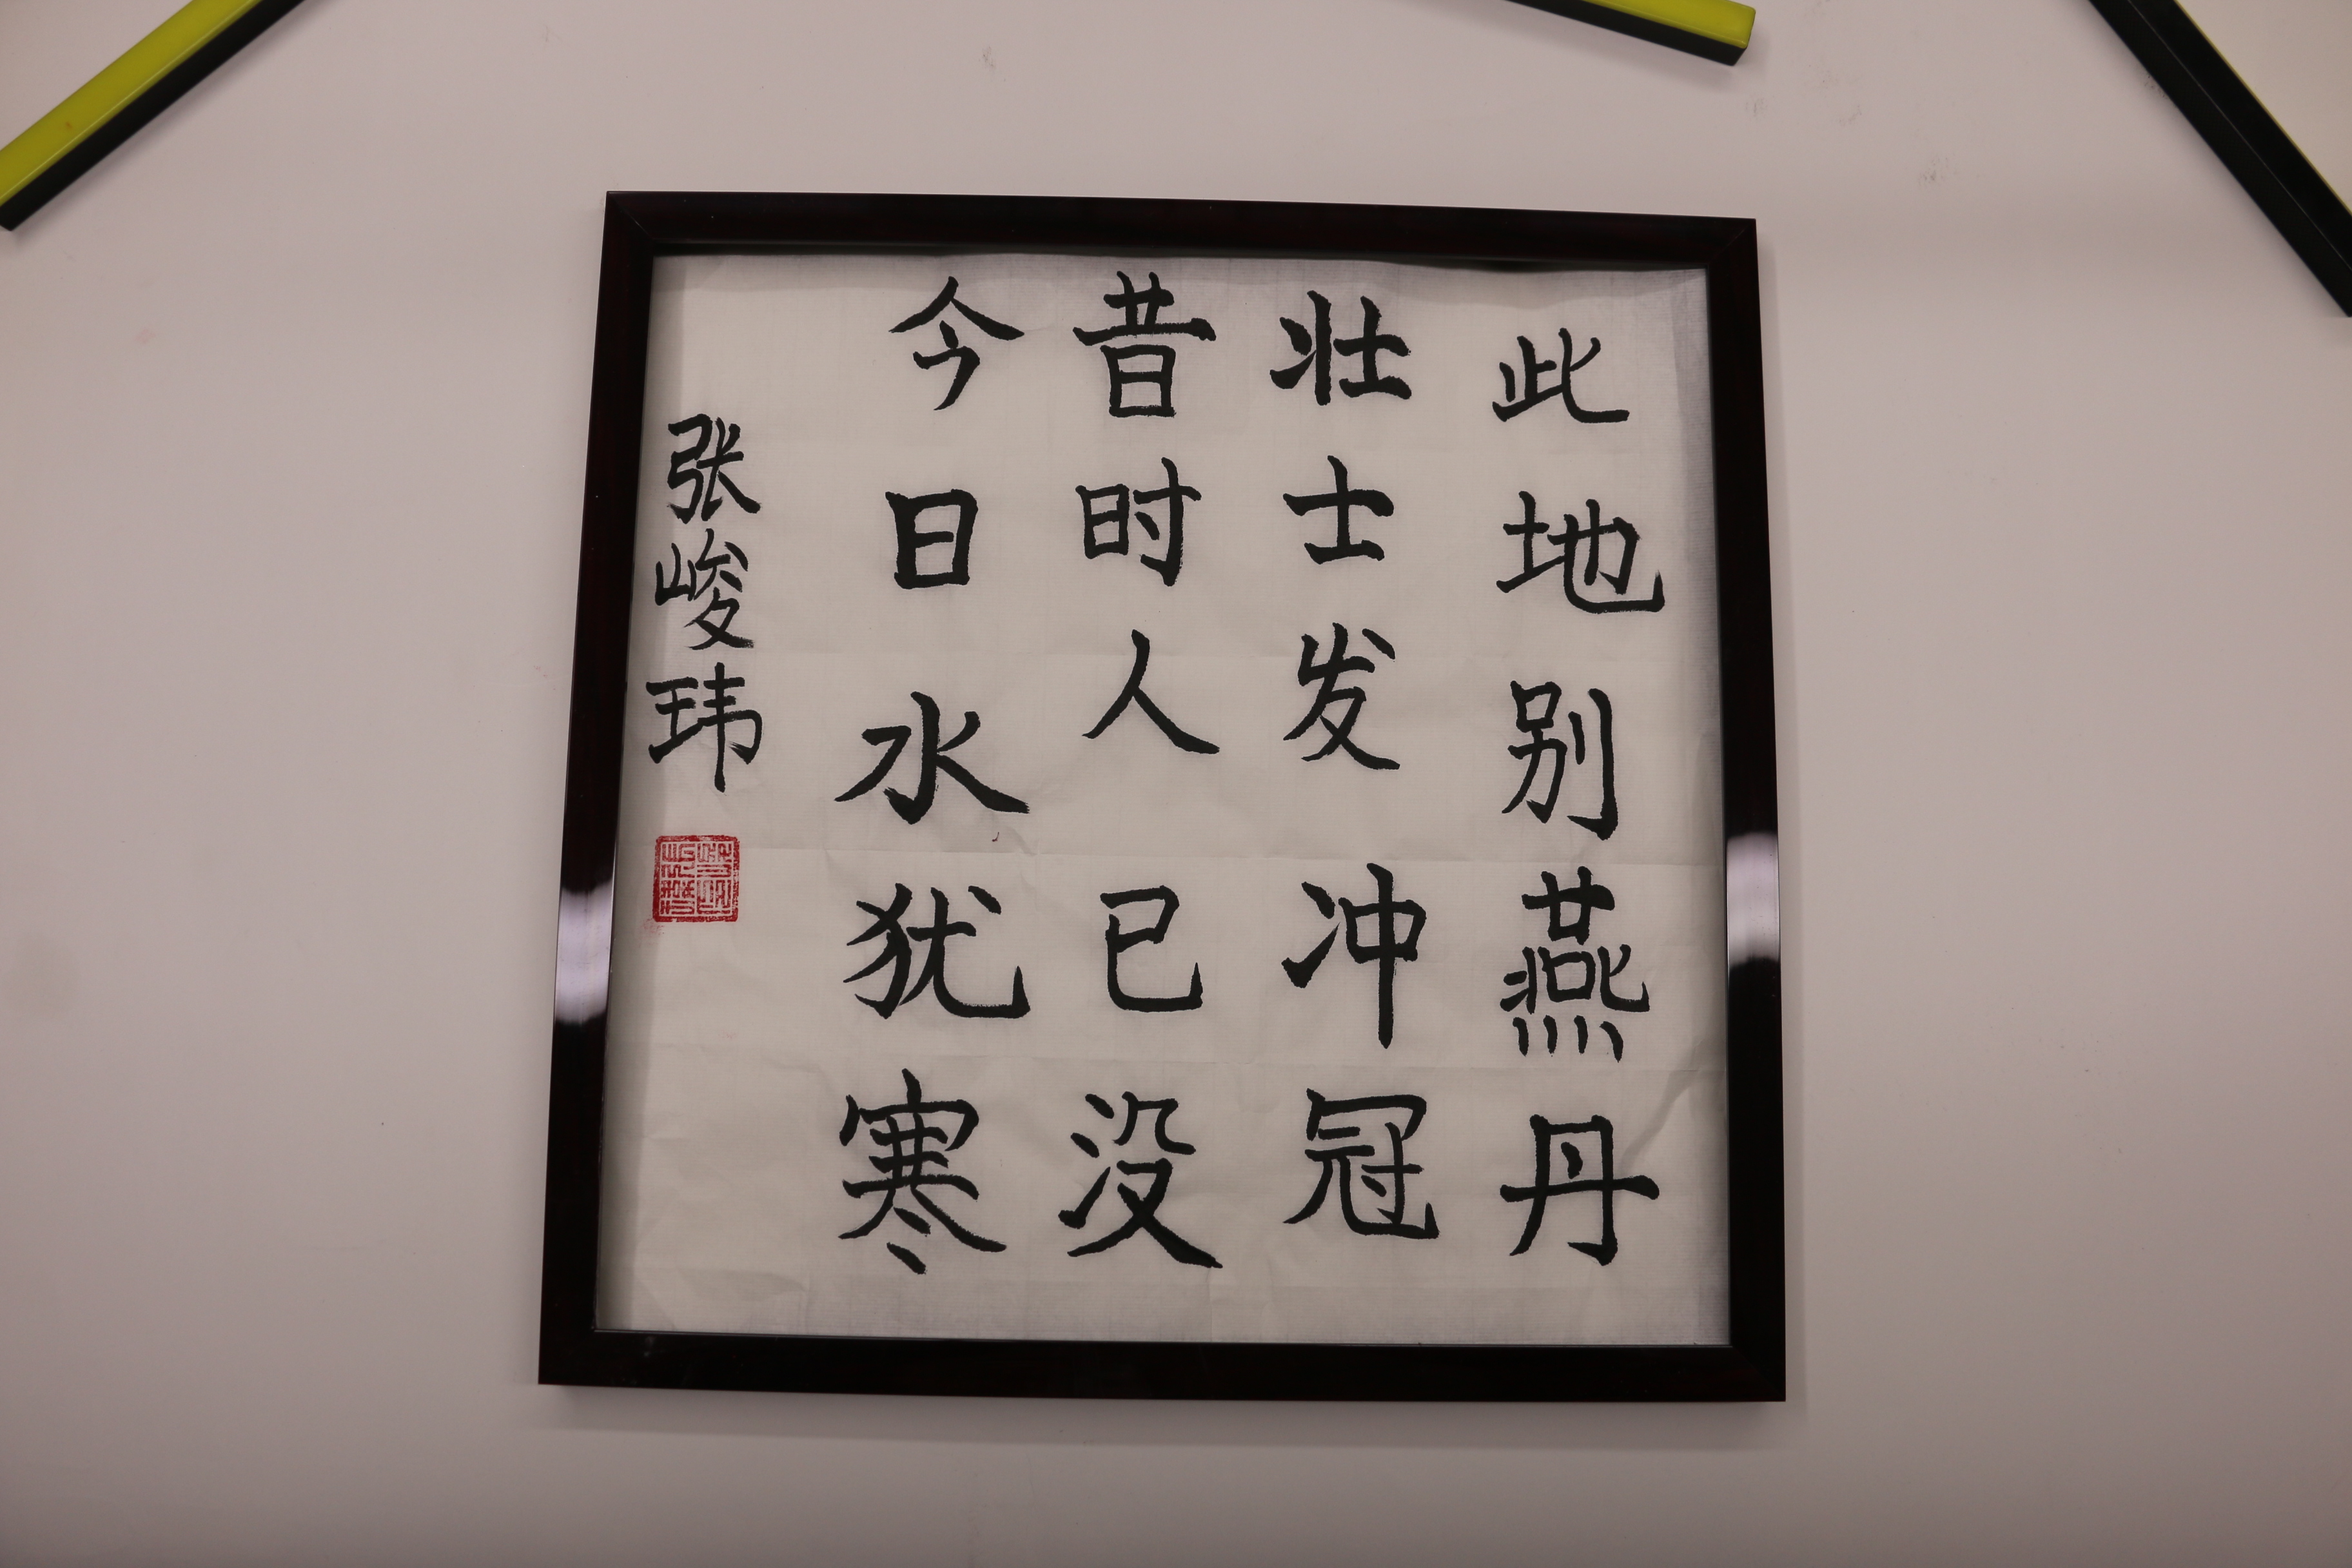 此地别燕丹
壮士发冲冠
昔时人已没
今日水犹寒
张峻玮